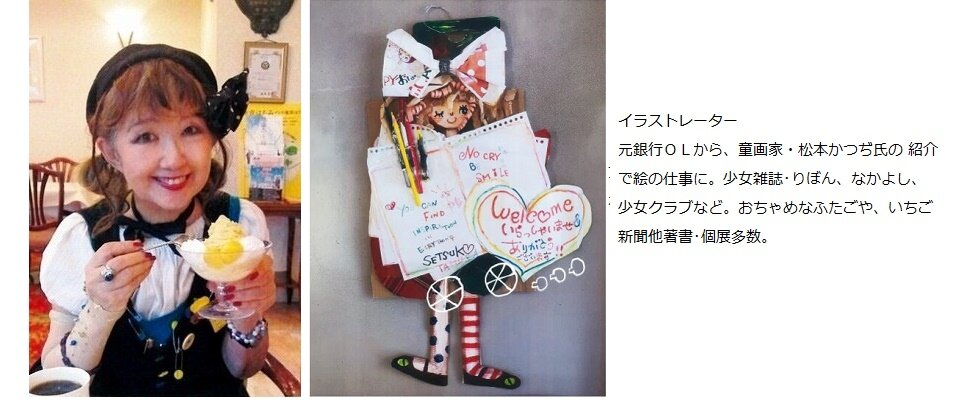 NO CRY
BE
SMILE
YOU CAN
FIND
INSPIRATION
IN
EVERYTHING
SETSUKO
Welcome
いらっしゃいませ
ありがとう
ございます!!
イラストレーター
元銀行ＯＬから、童画家・松本かつぢ氏の 紹介
で絵の仕事に。少女雑誌･りぼん、なかよし、
少女クラブなど。おちゃめなふたごや、いちご
新聞他著書･個展多数。